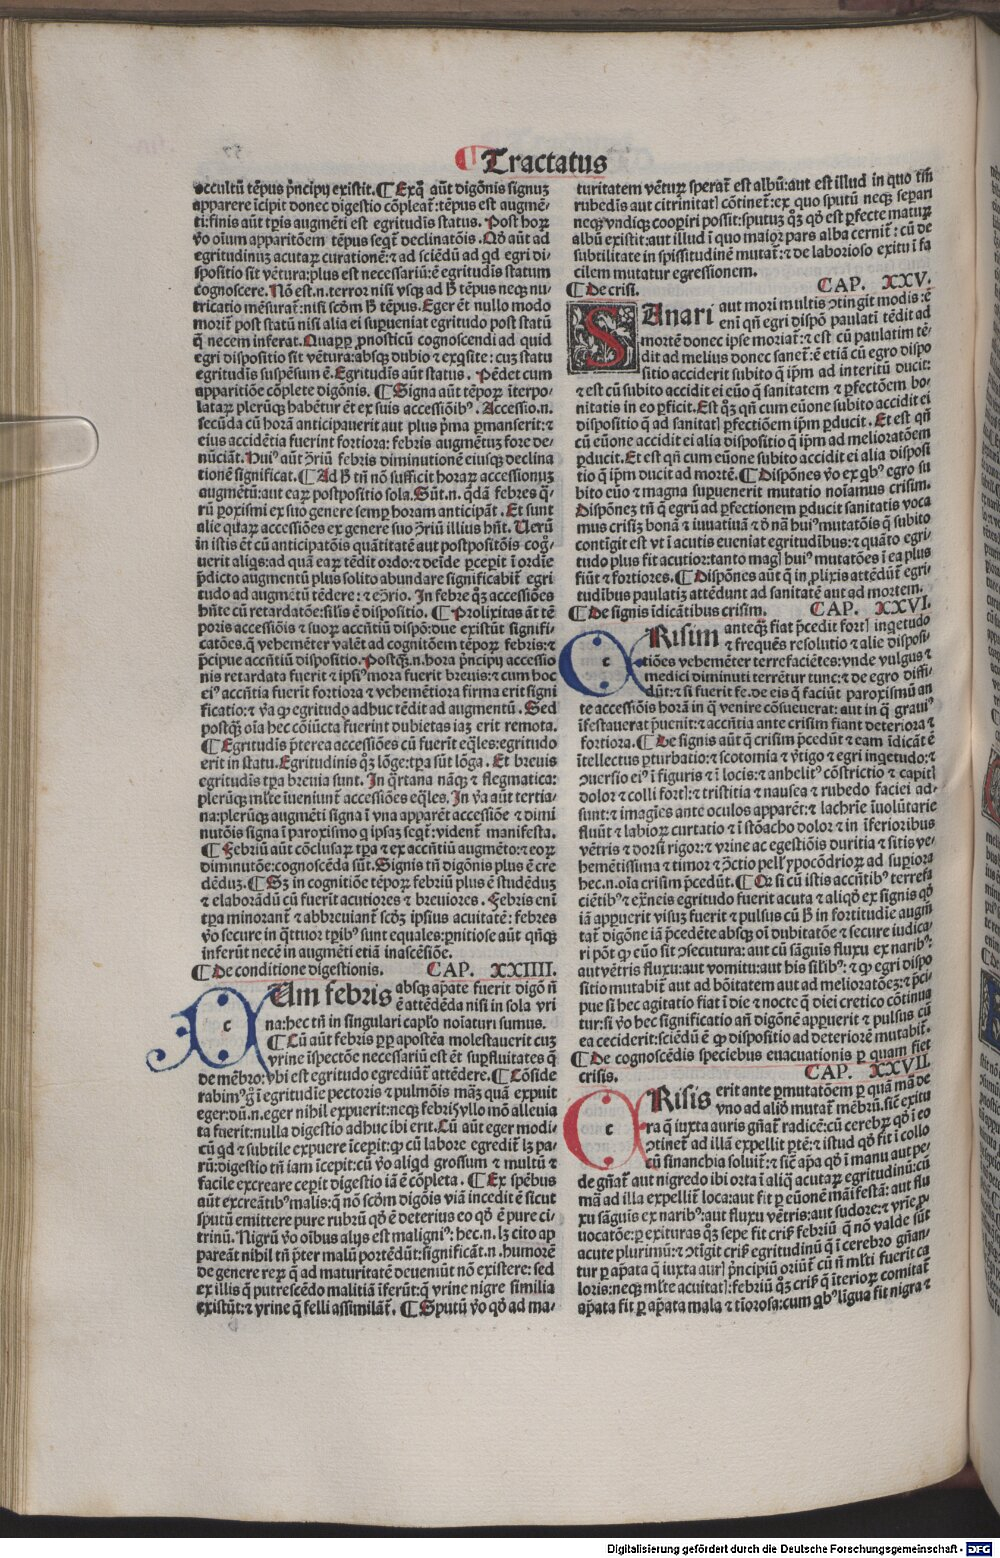 Tractatus
occultũ tẽpus p̃ncipij existit. ¶ Exq̃ aũt digõnis signuꝫ
apparere ĩcipit donec digestio cõpleat᷑: tẽpus est augmẽ-
ti: finis aũt tp̃is augmẽti est egritudis status. Post hoꝝ
ṽo oĩum apparitõem tẽpus seqt᷑ declinatõis. Qď aũt ad
egritudinuꝫ acutaꝝ curationẽ: ⁊ ad sciẽdũ ad qd egri di-
spositio sit vẽtura: plus est necessariũ: ẽ egritudĩs statum
cognoscere. Nõ est .n. terror nisi vsqꝫ ad ħ tẽpus neqꝫ nu-
tricatio mẽsurat᷑: nisi scďm ħ tẽpus. Eger ẽt nullo modo
morit᷑ post statũ nisi alia ei supueniat egritudo post statũ
q̃ necem inferat. Quaꝓꝑ ꝓnosticũ cognoscendi ad quid
egri dispositio sit vẽtura: absqꝫ dubio ⁊ exq̃site: cuꝫ statu
egritudĩs suspẽsum ẽ. Egritudĩs aũt status. Pẽdet cum
apparitiõe cõplete digõnis. ¶ Signa aũt tẽpoꝝ ĩterpo-
lataꝝ plerũqꝫ habẽtur ẽt ex suis accessiõibꝰ. Accessio .n.
secũda cũ horã anticipauerit aut plus p̃ma ꝑmanserit: ⁊
eius accidẽtia fuerint fortiora: febris augmẽtuꝫ fore de-
nũciãt. Huiꝰ aũt ↄ̃riũ febris diminutionẽ eiusqꝫ declina
tionẽ significat. ¶ Ad ħ tñ nõ sufficit horaꝝ accessionuꝫ
augmẽtũ: aut eaꝝ postpositio sola. Sũt .n. qdã febres q̃-
rũ ꝑoxismi ex suo genere semꝑ horam anticipãt. Et sunt
alie quaꝝ accessiões ex genere suo ↄ̃riũ illius hñt. Uerũ
in istis ẽt cũ anticipatõis quãtitatẽ aut postpositõis cog̃-
uerit aliqs: ad quã eaꝝ tẽdit ordo: ⁊ deĩde ꝑceꝑit ĩ ordĩe
p̃dicto augmentũ plus solito abundare significabit᷑ egri
tudo ad augmẽtũ tẽdere: ⁊ eↄ̃rio. In febre qꝫ accessiões
hñte cũ retardatõe: silis ẽ dispositio. ¶ Prolixitas ãt tẽ
poris accessiõis ⁊ suoꝝ accñtiũ dispõ: due existũt signifi-
catões. q̃ vehemẽter valẽt ad cognitõem tẽpoꝝ febris: ⁊
p̃cipue accñtiũ dispositio. Postq̃ꝫ .n. hora p̃ncipij accessio
nis retardata fuerit ⁊ ipsiꝰ mora fuerit breuis: ⁊ cum hoc
eiꝰ accñtia fuerit fortiora ⁊ vehemẽtiora firma erit signi
ficatio: ⁊ ṽa ꝙ egritudo adhuc tẽdit ad augmentũ. Sed
postq̃ꝫ oĩa hec cõiũcta fuerint dubietas iaꝫ erit remota.
¶ Egritudĩs p̃terea accessiões cũ fuerĩt eq̃les: egritudo
erit in statu. Egritudinis qꝫ lõge: tp̃a sũt lõga. Et breuis
egritudis tp̃a breuia sunt. In q̃rtana nãqꝫ ⁊ flegmatica:
plerũqꝫ ml̃te ĩueniunt᷑ accessiões eq̃les. In ṽa aũt tertia-
na: plerũqꝫ augmẽti signa ĩ vna apparẽt accessiõe ⁊ dimi
nutõis signa ĩ paroxismo q ipsaꝫ seqt᷑: vident᷑ manifesta.
¶ Febriũ aũt cõclusaꝝ tp̃a ⁊ ex accñtiũ augmẽto: ⁊ eoꝝ
diminutõe: cognoscẽda sũt. Signis tñ digõnis plus ẽ cre
dẽduꝫ. ¶ Sꝫ in cognitiõe tẽpoꝝ febriũ plus ẽ studẽduꝫ
⁊ elaborãdũ cũ fuerĩt acutiores ⁊ breuiores. Febris enĩ
tp̃a minorant᷑ ⁊ abbreuiant᷑ scďꝫ ipsius acuitatẽ: febres
ṽo secure in q̃ttuor tp̃ibꝰ sunt equales: ꝑnitiose aũt qñqꝫ
inferũt necẽ in augmẽti etiã inascẽsiõe.
¶ De conditione digestionis. CAP. XXIIII.
c
Am febris absqꝫ apãte fuerit digõ ñ
ẽ attẽdẽda nisi in sola vri
na: hec tñ in singulari caplo noĩaturi sumus.
¶ Cũ aũt febris ꝓꝑ apostẽa molestauerit cuꝫ
vrine ĩspectõe necessariũ est ẽt supfluitates q̃
de mẽbro: vbi est egritudo egrediũt᷑ attẽdere. ¶ Cõside
rabimꝰ g̃ ĩ egritudĩe pectoris ⁊ pulmõis mãꝫ quã expuit
eger: dũ .n. eger nihil expuerit: neqꝫ febriſ vllo mõ alleuia
ta fuerit: nulla digestio adhuc ibi erit. Cũ aũt eger modi-
cũ qd ⁊ subtile expuere ĩceꝑit: ꝙ cũ labore egredit᷑ lꝫ pa-
rũ: digestio tñ iam ĩceꝑit: cũ ṽo aliqd grossum ⁊ multũ ⁊
facile excreare ceꝑit digestio iã ẽ cõpleta. ¶ Ex spẽbus
aũt excreãtibꝰ malis: q̃ nõ scďm digõis viã incedit ẽ sicut
sputũ emittere pure rubrũ qď ẽ deterius eo qď ẽ pure ci-
trinũ. Nigrũ ṽo oĩbus alijs est malignꝰ: hec .n. lꝫ cito ap
pareãt nihil tñ p̃ter malũ portẽdũt: significãt .n. humorẽ
de genere reꝝ q̃ ad maturitatẽ deueniũt nõ existere: sed
ex illis q̃ putrescẽdo malitiã ĩferũt: q̃ vrine nigre similia
existũt: ⁊ vrine q̃ felli assimilãt᷑. ¶ Sputũ ṽo qď ad ma-
turitatem vẽtuꝝ sperat᷑ est albũ: aut est illud in quo tm̃
rubedĩs aut citrinitat] cõtinet᷑: ex quo sputũ neqꝫ separi
neqꝫ vndiqꝫ cooperiri possit: sputuꝫ qꝫ qď est ꝑfecte matuꝝ
albũ existit: aut illud ĩ quo maior pars alba cernit᷑: cũ de
subtilitate in spissitudinẽ mutat᷑: ⁊ de laborioso exitu ĩ fa
cilem mutatur egressionem.
¶ De crisi. CAP. XXV.
S
Anari aut mori multis ↄtingit modis: ẽ
enĩ qñ egri dispõ paulatĩ tẽdit ad
mortẽ donec ipse moriat᷑: ⁊ est cũ paulatim tẽ-
dit ad melius donec sanet᷑: ẽ etiã cũ egro dispo
sitio acciderit subito q̃ ip̃m ad interitũ ducit:
⁊ est cũ subito accidit ei eũo q̃ sanitatem ⁊ ꝑfectõem bo-
nitatis in eo ꝑficit. Est qꝫ qñ cum eũone subito accidit ei
dispositio q̃ ad sanitat] ꝑfectiõem ip̃m ꝑducit. Et est qñ
cũ eũone accidit ei alia dispositio q̃ ip̃m ad melioratõem
ꝑducit. Et est qñ cum eũone subito accidit ei alia disposi
tio q̃ ip̃m ducit ad mortẽ. ¶ Dispõnes ṽo ex qbꝰ egro su
bito eũo ⁊ magna supuenerit mutatio noĩamus crisim.
Dispõnez tñ q̃ egrũ ad ꝑfectionem ꝑducit sanitatis voca
mus crisiꝫ bonã ⁊ iuuatiuã ⁊ ď nã huiꝰ mutatõis q̃ subito
contĩgit est vt ĩ acutis eueniat egritudĩbus: ⁊ quãto egri-
tudo plus fit acutior: tanto mag] huiꝰ mutatões ĩ ea plus
fiũt ⁊ fortiores. ¶ Dispõnes aũt q̃ in ꝓlixis attẽdũt᷑ egri-
tudĩbus paulatiꝫ attẽdunt ad sanitatẽ aut ad mortem.
¶ De signis ĩdicãtibus crisim. CAP. XXVI.
c
Risim anteq̃ꝫ fiat p̃cedit fort] inqetudo
⁊ frequẽs resolutio ⁊ alie disposi-
tiões vehemẽter terrefaciẽtes: vnde vulgus ⁊
medici diminuti terrẽtur tunc: ⁊ de egro diffi-
dũt: ⁊ si fuerit fe. de eis q̃ faciũt paroxismũ an
te accessiõis horã in q̃ venire cõsueuerat: aut in q̃ grauiꝰ
ĩfestauerat p̃uenit: ⁊ accñtia ante crisim fiant deteriora ⁊
fortiora. ¶ De signis aũt q̃ crisim p̃cedũt ⁊ eam ĩdicãt ẽ
ĩtellectus ꝑturbatio: ⁊ scotomia ⁊ ṽtigo ⁊ egri inqetudo: ⁊
ↄuersio eiꝰ ĩ figuris ⁊ ĩ locis: ⁊ anhelitꝰ cõstrictio ⁊ capit]
dolor ⁊ colli fort]: ⁊ tristitia ⁊ nausea ⁊ rubedo faciei ad-
sunt: ⁊ imagĩes ante oculos apparẽt: ⁊ lachrĩe ĩuolũtarie
fluũt ⁊ labioꝝ curtatio ⁊ ĩ stõacho dolor ⁊ in ĩferioribus
vẽtris ⁊ dorsi rigor: ⁊ vrine ac egestiõis duritia ⁊ sitis ve-
hemẽtissima ⁊ timor ⁊ ↄ̃ctio pell] ypocõdrioꝝ ad supiora
hec .n. oĩa crisim p̃cedũt. ¶ Or si cũ istis accñtibꝰ terrefa
ciẽtibꝰ ⁊ exñeis egritudo fuerit acuta ⁊ aliqď ex signis qď
iã apꝑuerit visuꝫ fuerit ⁊ pulsus cũ ħ in fortitudĩe augm̃
tat᷑ digõne iã p̃cedẽte absqꝫ oĩ dubitatõe ⁊ secure iudica-
ri põt ꝙ eũo sit ↄsecutura: aut cũ sãguis fluxu ex naribꝰ:
aut vẽtris fluxu: aut vomitu: aut his silibꝰ: ⁊ ꝙ egri dispo
sitio mutabit᷑ aut ad bõitatem aut ad melioratõeꝫ: ⁊ p̃ci-
pue si hec agitatio fiat ĩ die ⁊ nocte q̃ diei cretico cõtinua
tur: si ṽo hec significatio añ digõnẽ apꝑuerit ⁊ pulsus cũ
ea ceciderit: sciẽdũ ẽ ꝙ dispositio ad deteriorẽ mutabit᷑.
¶ De cognoscẽdis speciebus euacuationis ꝑ quam fiet
crisis. CAP. XXVII.
c
Risis erit ante ꝑmutatõem ꝑ quã mã de
vno ad aliõ mutat᷑ mẽbrũ. siẽ exitu
ra q̃ iuxta auris gñat᷑ radicẽ: cũ cerebꝝ qď ĩ eo
ↄtinet᷑ ad illã expellit ꝑtẽ: ⁊ istud qď fit ĩ collo
cũ sinanchia soluit᷑: ⁊ siẽ ap̃a qď ĩ manu aut pe-
de gñat᷑ aut nigredo ibi orta ĩ aliq̃ acutaꝝ egritudinũ: cũ
mã ad illa expellit᷑ loca: aut fit ꝑ eũonẽ mãifestã: aut flu
xu sãguis ex naribꝰ: aut fluxu vẽtris: aut sudore: ⁊ vrĩe ꝓ
uocatõe: ꝑ exituras qꝫ sepe fit cris] febriũ q̃ nõ valde sũt
acute plurimũ: ⁊ ↄtĩgit cris] egritudinũ q̃ ĩ cerebro gñan-
tur ꝑ apãta q̃ iuxta aur] p̃ncipiũ oriũt᷑ cũ ñ ml̃ti fuerit ca
loris: neqꝫ ml̃te acuitat]: febriũ qꝫ cris] q̃ ĩterioꝝ comitat᷑
apãta fit ꝑ apãta mala ⁊ tĩorosa: cum qbꝰ lĩgua fit nigra ⁊
Digitalisierung gefördert durch die Deutsche Forschungsgemeinschaft - DFG